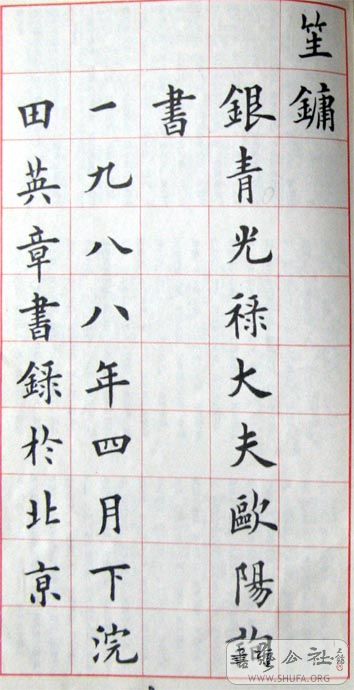 笙鏞
銀青光禄大夫歐陽詢
書
一九八八年四月下浣
田英章書録於北京
書藝公社
WWW.SHUFA.ORG